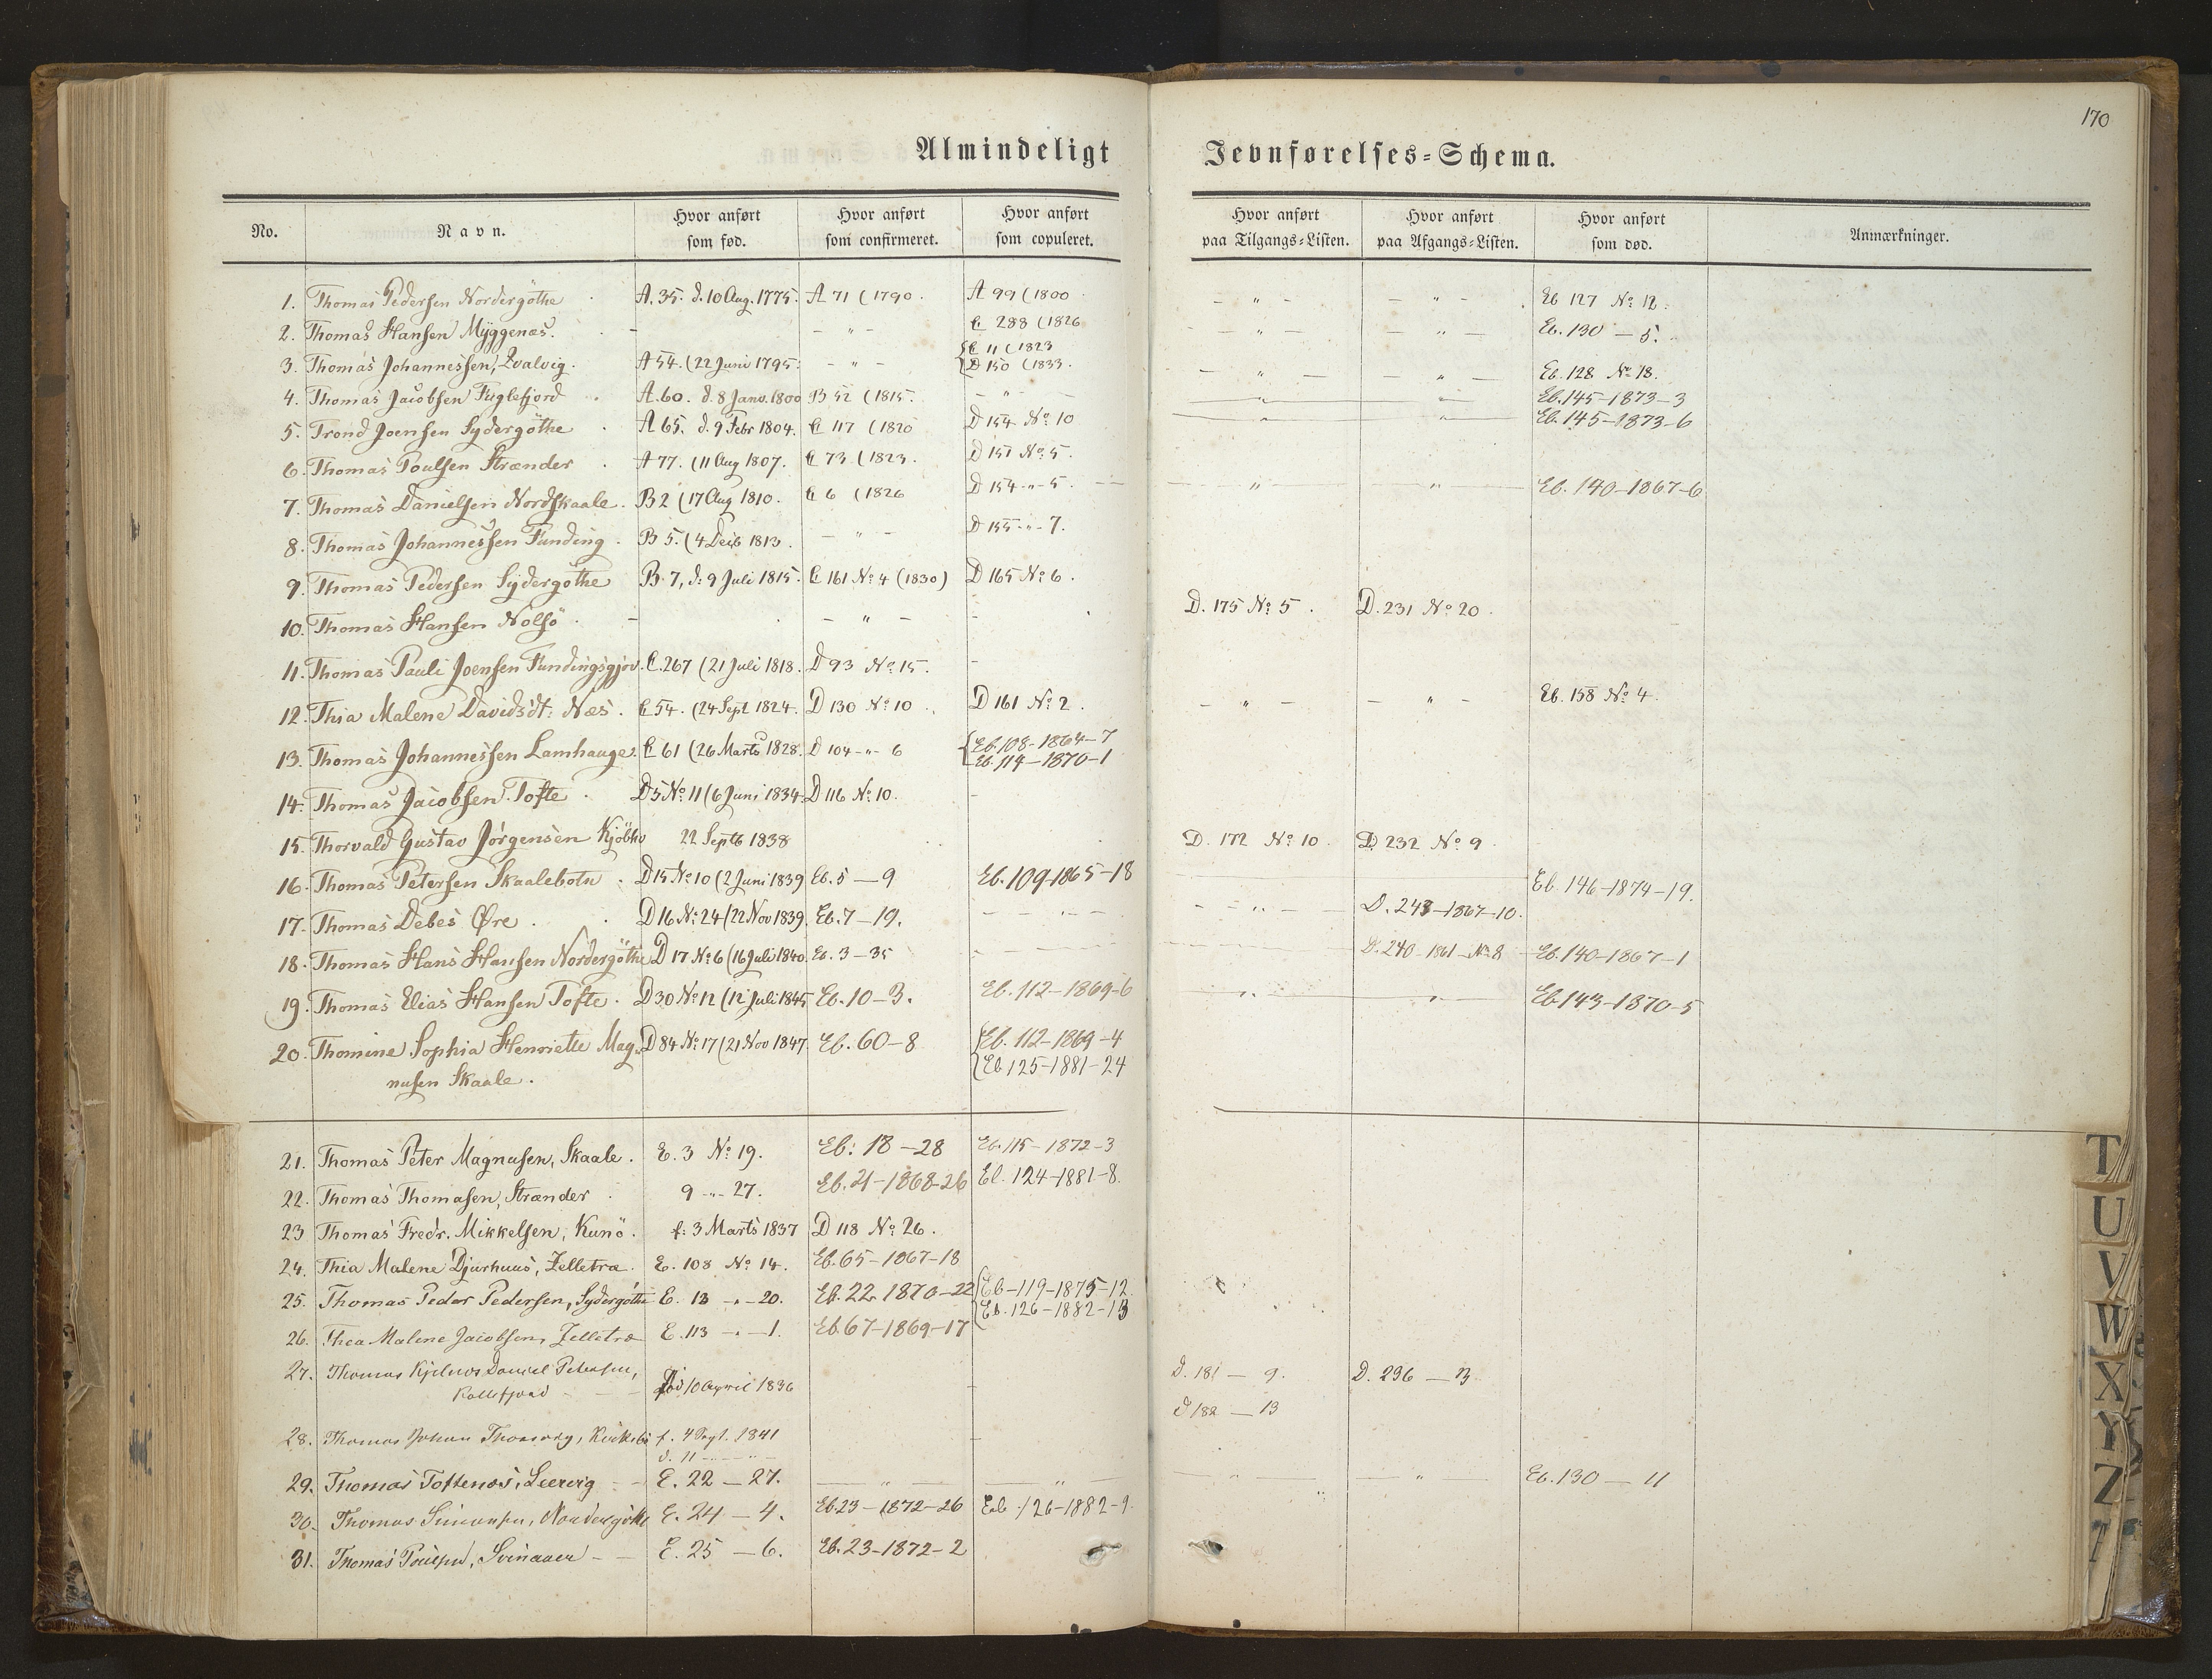 170
Almindeligt Jevnførelses=Schema.
No. Navn. Hvor anført som fød. Hvor anført som confirmeret. Hvor anført som copuleret. Hvor anført paa Tilgangs=Listen. Hvor anført paa Afgangs=Listen. Hvor anført som død. Anmærkninger.
1. Thomas Pedersen Nordergöthe A. 35. d. 10 Aug. 1775. A 71 (1790. A 99 (1800 - " - - " - Eb 127 No 12.
2. Thomas Hansen Myggenæs. - - " - C 288 (1826 - " - - " - Eb. 130 - 5.
3. Thomas Johannessen, Qvalvig. A 54. (22 Juni 1795. - " - {C 11 (1823 {D 150 (1833. - " - - " - Eb. 128 No 18.
4. Thomas Jacobsen Fuglefjord. A. 60. d. 8 Janv. 1800 B 52 (1815. - " - - " - - " - Eb. 145-1873-3
5. Trond Joensen Sydergöthe. A 65. d. 9 Febr 1804. C 117 (1820 D 154 No 10 - " - - " - Eb. 145-1873-6
6. Thomas Poulsen Strænder. A 77. (11 Aug 1807. C 73 (1823. D 151 No 5.
7. Thomas Danielsen Nordskaale. B 2 (17 Aug 1810. C 6 (1826 D 154 -"- 5. - " - - " - Eb. 140-1867-6
8. Thomas Johannessen Funding. B 5. (4 Decb 1813. - " - D 155 -"- 7.
9. Thomas Pedersen Sydergöthe B. 7, d. 9 Juli 1815. C 161 No 4 (1830) D 165 No 6.
10. Thomas Hansen Nolsö. - - " - - D. 175 No 5. D. 231 No 20.
11. Thomas Pauli Joensen Fundingsgjov. C. 267 (21 Juli 1818. D 93 No 15. -
12. Thia Malene Davidsdt: Næs. C 54. (24 Sept 1824. D 130 No 10. D 161 No 2. - " - - " - Eb. 158 No 4.
13. Thomas Johannessen Lamhauge. C 61 (26 Marts 1828. D 104 -"- 6 {Eb. 108-1864-7 {Eb. 114-1870-1
14. Thomas Jacobsen Tofte. D 5 No 11 (6 Juni 1834. D 116 No 10. -
15. Thorvald Gustav Jörgensen Kjöbhv 22 Septb 1838 D. 172 No 10. D. 232 No 9
16. Thomas Petersen Skaalebotn. D 15 No 10 (2 Juni 1839 Eb. 5 - 9 Eb. 109-1865-18 Eb. 146-1874-19.
17. Thomas Debes Øre. D 16 No 24 (22 Nov 1839. Eb. 7 - 19. - - " - - - " - D. 243-1867-10.
18. Thomas Hans Hansen Nordergöthe D 17 No 6 (16 Juli 1840. Eb. 3 - 35 D. 240-1861-No 8 Eb. 140-1867-1
19. Thomas Elias Hansen Tofte. D 30 No 12 (12 Juli 1845 Eb. 10-3. Eb. 112-1869-6 - " - - " - Eb 143-1870-5
20. Thomine Sophia Henriette Mag- D 84 No 17 (21 Nov 1847. Eb. 60-8 {Eb. 112-1869-4
nusen Skaale. {Eb 125-1881-24
21. Thomas Peter Magnusen, Skaale. E. 3 No 19. Eb: 18 - 28 Eb. 115-1872-3
22. Thomas Thomasen, Strænder. 9 -"- 27. Eb. 21-1868-26 Eb. 124-1881-8.
23 Thomas Fredr. Mikkelsen, Kunö. f: 3 Marts 1837 D 118 No 26.
24. Thia Malene Djurhuus, Zelletræ. E. 108 No 14. Eb. 65-1867-18
25. Thomas Peder Pedersen, Sydergöthe E. 13 -"- 20. Eb. 22. 1870-22 {Eb-119-1875-12. {Eb. 126-1882-13
26. Thea Malene Jacobsen, Zelletræ E. 113 -"- 1. Eb. 67-1869-17
27. Thomas Daniel Petersen, Kollefjord - - - Fød 10 April 1836 - D. 181 - 9. D. 236 - 3
28. Thomas Johan f. 4 Sept. 1841 d. 11 - " - - D 182 - 13
29. Thomas Toftenæs, Leervig - - E. 22 - 27. - " - - " - - " - - " - Eb. 130 - 11
30. Thomas Simonsen, Nordergöthe E. 24 - 4. Eb. 23-1872-26 Eb. 126-1882-9.
31. Thomas Poulsen, Svinaaer - - E. 25 - 6. Eb. 23-1872-2
T
U
V
W
X
Y
Z